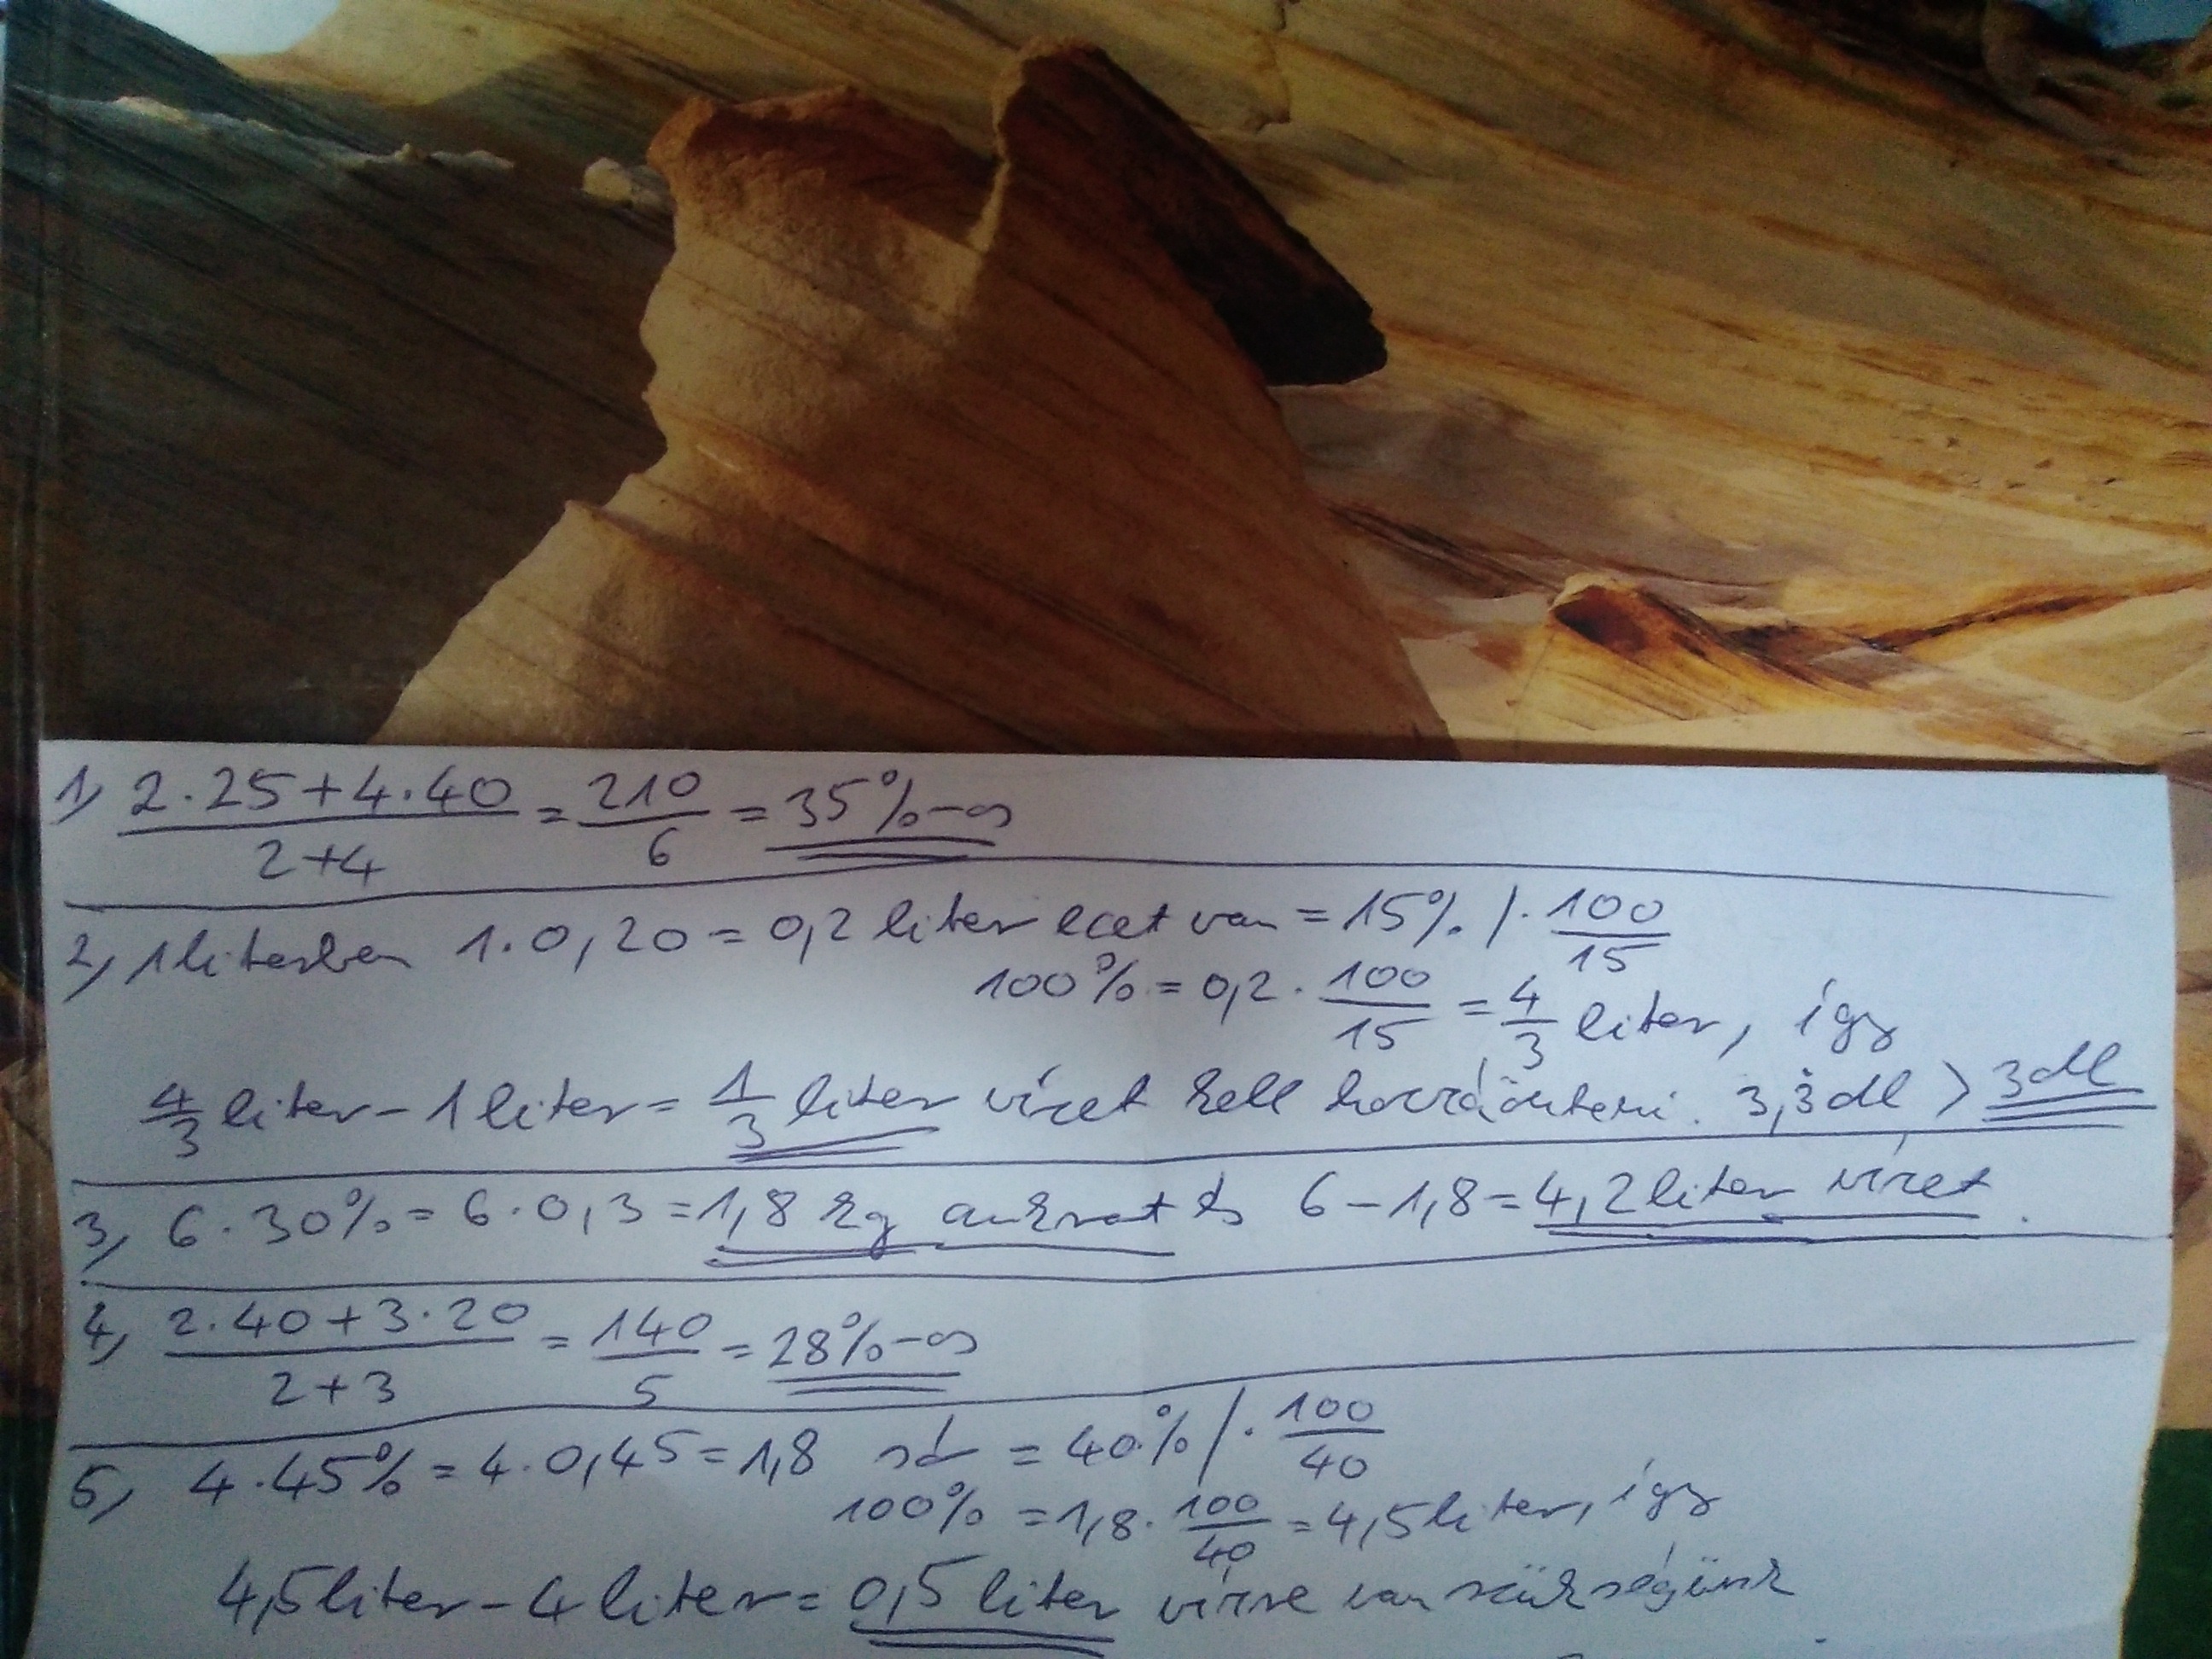 1, (2·25+4·40)/(2+4) = 210/6 = 35%-os
2, 1 literben 1·0,20=0,2 liter ecet van = 15% /· 100/15
100% = 0,2 · 100/15 = 4/3 liter, így
4/3 liter - 1 liter = 1/3 liter vizet kell hozzáönteni. 3,3̇ dl > 3 dl
3, 6·30% = 6·0,3 = 1,8 kg cukrot és 6-1,8 = 4,2 liter vizet.
4, (2·40+3·20)/(2+3) = 140/5 = 28%-os
5, 4·45% = 4·0,45 = 1,8 só = 40% /· 100/40
100% = 1,8 · 100/40 = 4,5 liter, így
4,5 liter - 4 liter = 0,5 liter vízre van szükségünk